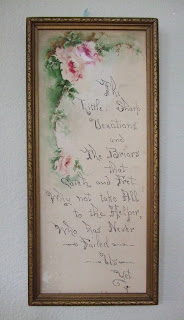 The
Little Sharp
Vexations
and
The Briars
that
Catch and Fret.
Why not take All
to the Helper,
Who has Never
Failed
Us
Yet.